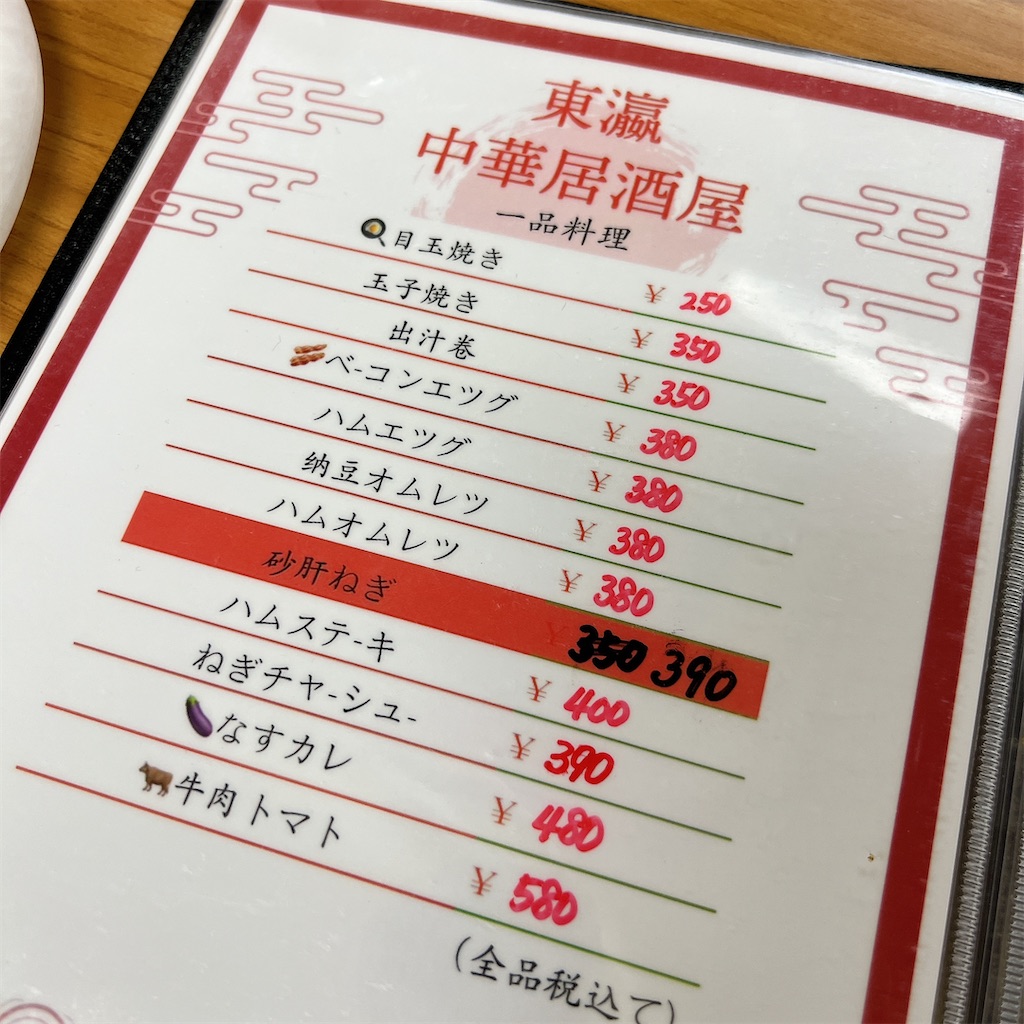 東瀛
中華居酒屋
一品料理
目玉焼き ¥ 250
玉子焼き ¥ 350
出汁巻 ¥ 350
ベ-コンエツグ ¥ 380
ハムエツグ ¥ 380
納豆オムレツ ¥ 380
ハムオムレツ ¥ 380
砂肝ねぎ ¥ 350 390
ハムステ-キ ¥ 400
ねぎチャ-シュ- ¥ 390
なすカレ ¥ 480
牛肉トマト ¥ 580
(全品税込て)